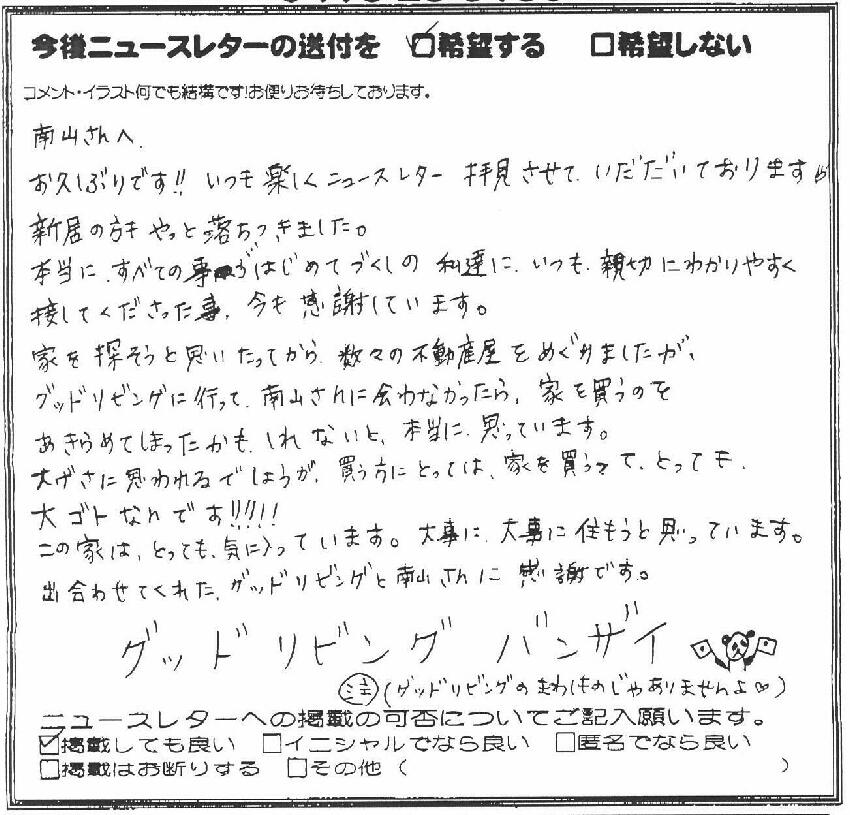 今後ニュースレターの送付を ☑希望する □希望しない
コメント・イラスト何でも結構です!お便りお待ちしております。
南山さんへ
お久しぶりです!! いつも楽しくニュースレター 拝見させて、いだだいております
新居の方もやっと落ちつきました。
本当に、すべての事がはじめてづくしの 私達に、いつも、親切にわかりやすく
接してくださった事、今も感謝しています。
家を探そうと思いたってから、数々の不動産屋をめぐりましたが、
グッドリビングに行って、南山さんに会わなかったら、家を買うのを
あきらめてしまったかも、しれないと、本当に、思っています。
大げさに思われるでしょうが、買う方にとっては、家を買うって、とっても、
大ゴトなんです!!!!!
この家は、とっても、気に入っています。大事に、大事に住もうと思っています。
出合わせてくれた、グッドリビングと南山さんに 感謝です。
グッド リビング バンザイ
注(グッドリビングのまわしものじゃありませんよ♡)
ニュースレターへの掲載の可否についてご記入願います。
☑掲載しても良い □イニシャルでなら良い □匿名でなら良い
□掲載はお断りする □その他( )